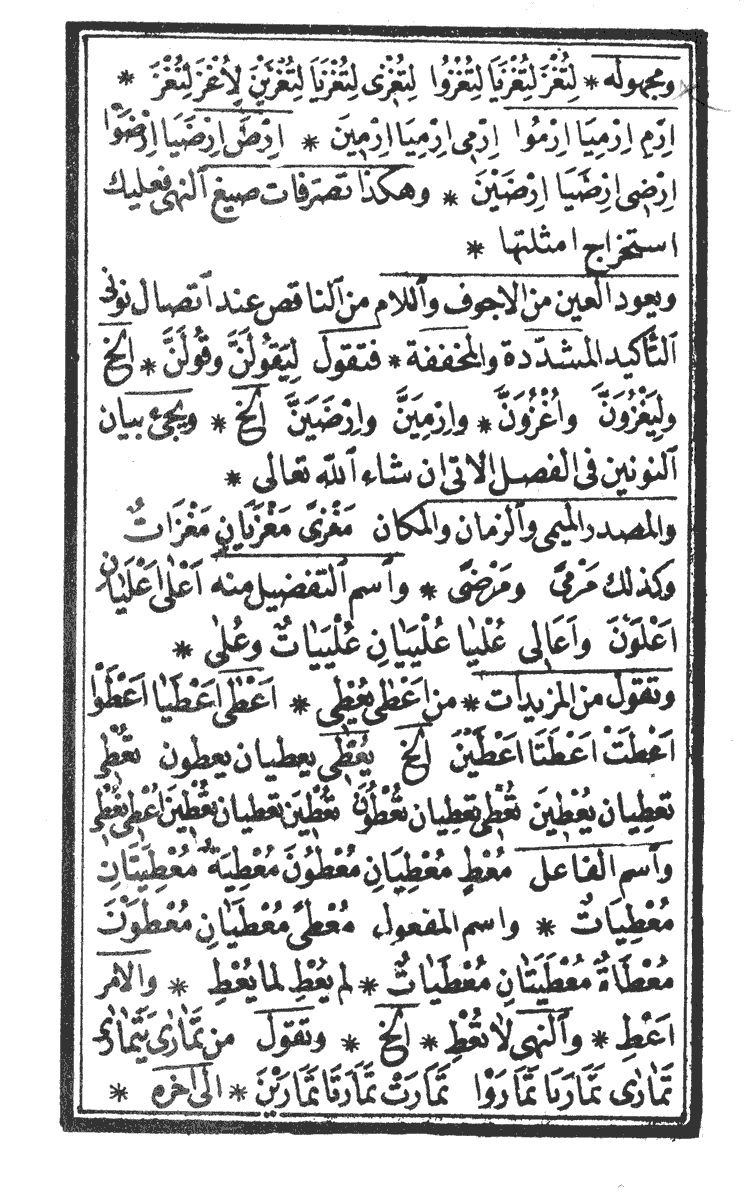 ومجهوله * لِتُغْزَ لِتُغْزَيَا لِتُغْزَوْا لِتُغْزَى لِتُغْزَيَا لِتُغْزَيْنَ لِأُغْزَ لِنُغْزَ *
اِرْمِ اِرْمِيَا اِرْمُوا اِرْمِى اِرْمِيَا اِرْمِينَ * اِرْضَ اِرْضَيَا اِرْضَوْا
اِرْضِى اِرْضَيَا اِرْضَيْنَ * وهكذا تصرفات صيغ ٱلنهى فعليك
استخراج امثلتها *
ويعود العين من الاجوف وٱللام من ٱلناقص عند ٱتصال نونى
ٱلتأكيد المشدّدة والمخففة * فتقول لِيَقُولَنَّ وقُولَنَّ * الخ
ولِيَغْزُوَنَّ وٱغْزُوَنَّ * وارْمِيَنَّ وارْضَيَنَّ الخ * ويجئ بيان
ٱلنونين فى الفصل الاتى ان شاء ٱلله تعالى *
والمصدر الميمى وٱلزمان والمكان مَغْزًى مَغْزَيَانِ مَغْزَاتٌ
وكذلك مَرْمًى ومَرْضًى * وٱسم ٱلتفضيل منه اَعْلٰى اَعْلَيَانِ
اَعْلَوْنَ واَعَالِى عُلْيٰا عُلْيَيَانِ عُلْيَيَاتٌ وعُلىً *
وتقول من المزيدات * من اَعْطٰى يُعْطِى * اَعْطٰى اَعْطَيَا اَعْطَوْا
اَعْطَتْ اَعْطَتَا اَعْطَيْنَ الخ يُعْطِى يعطيان يعطون تُعْطِى
تعطيان يُعْطِينَ تُعْطِى تعطيان تُعْطُونَ تُعْطِينَ تعطيان تُعْطِينَ اُعْطِى نُعْطِى
وٱسم الفاعل مُعْطٍ مُعْطِيَانِ مُعْطُونَ مُعْطِيَةٌ مُعْطِيَتَانِ
مُعْطِيَاتٌ * واسم المفعول مُعْطًى مُعْطَيَانِ مُعْطَوْنَ
مُعْطَاةٌ مُعْطَيَتَانِ مُعْطَيَاتٌ * لم يُعْطِ لما يُعْطِ * والامر
اَعْطِ * وٱلنهى لا تُعْطِ * الخ * وتقول من تَمَارٰى يَتَمَارٰى
تَمَارٰى تَمَارَيَا تَمَارَوْا تَمَارَتْ تَمَارَتَا تَمَارَيْنَ * الى آخره *